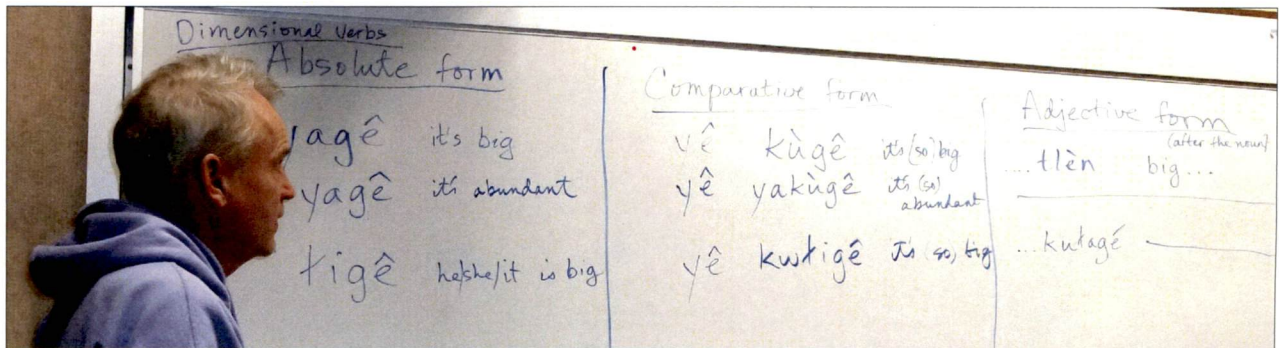 Dimensional Verbs
Absolute form
agê it's big
yagê it's abundant
łigê he/she/it is big
Comparative form
yê kùgê it's (so) big
yê yakùgê it's (so) abundant
yê kwłigê it's (so) big
Adjective form
(after the noun)
....tlèn big...
...kułagé